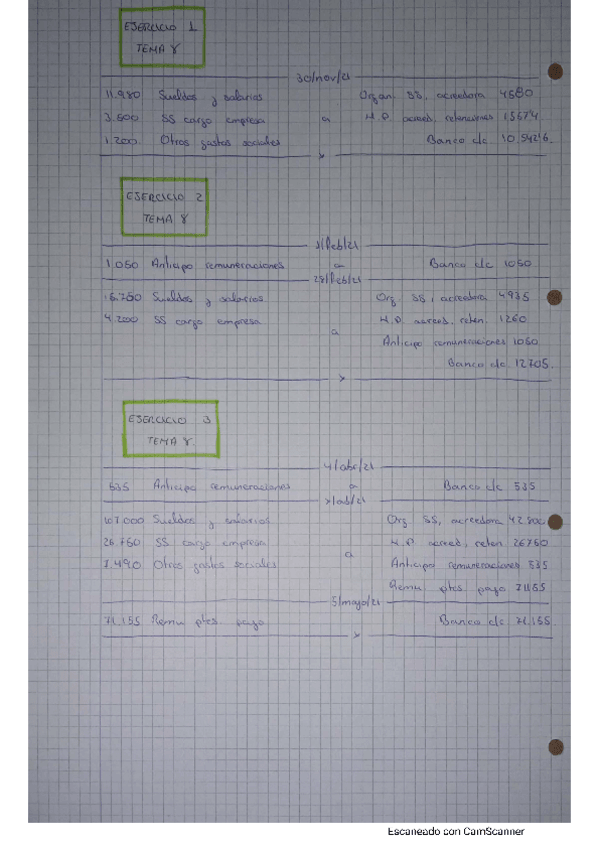 EJERCICIO 1
TEMA 8
30/nov/21
11.980 Sueldos y salarios Organ. SS, acreedora 4680
3.600 SS cargo empresa a H.P. acreed, retenciones 1557'4
1.200 Otros gastos sociales Banco c/c 10.542'6
x
EJERCICIO 2
TEMA 8
/feb/21
1.050 Anticipo remuneraciones a Banco c/c 1050
28/feb/21
Sueldos y salarios Org. SS, acreedora 4935
4.200 SS cargo empresa H.P. acreed, reten. 1260
a
Anticipo remuneraciones 1050
Banco c/c 12705.
x
EJERCICIO 3
TEMA 8.
4/abr/21
535 Anticipo remuneraciones a Banco c/c 535
/abr/21
107.000 Sueldos y salarios Org SS, acreedora 42.800
26.750 SS cargo empresa H.P. acreed, reten 26750
7.490 Otros gastos sociales a Anticipo remuneraciones 535
Remu ptes. pago 71155
5/mayo/21
71.155 Remu ptes. pago Banco c/c 71.155.
x
Escaneado con CamScanner